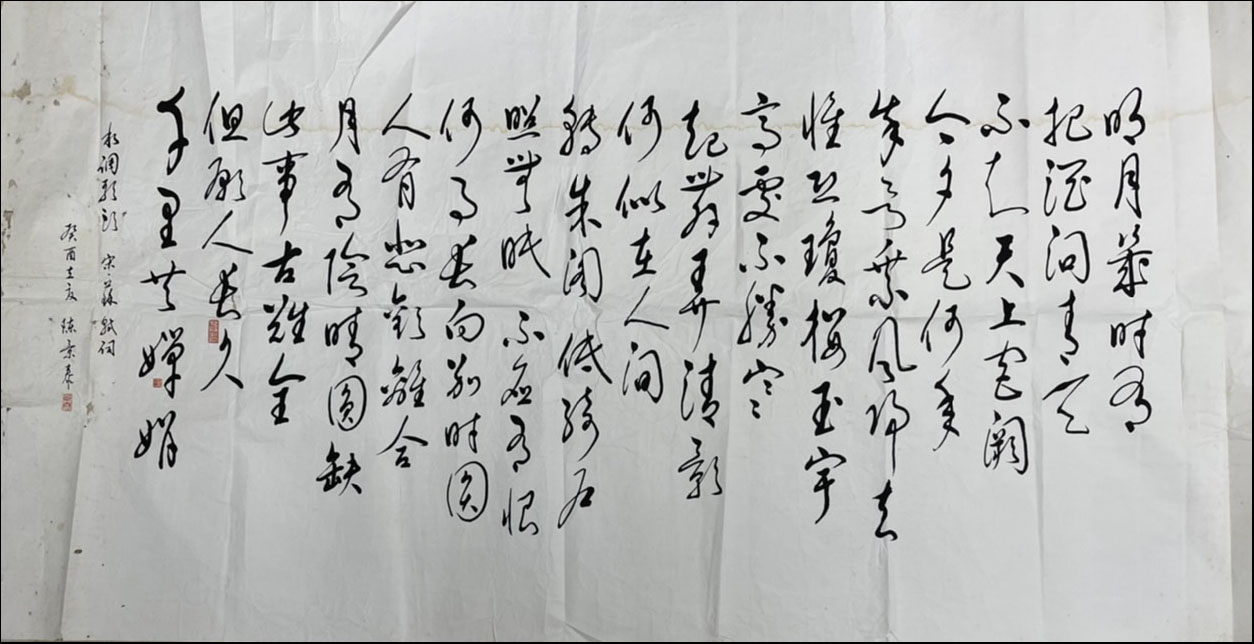 明月幾时有
把酒问青天
不知天上宫阙
今夕是何年
我欲乘风归去
惟恐瓊楼玉宇
高處不勝寒
起舞弄清影
何似在人间
轉朱阁低绮户
照無眠不应有恨
何事長向别时圆
人有悲歡離合
月有陰晴圆缺
此事古難全
但願人長久
千里共嬋娟
水调歌头 宋 蘇軾词
癸酉